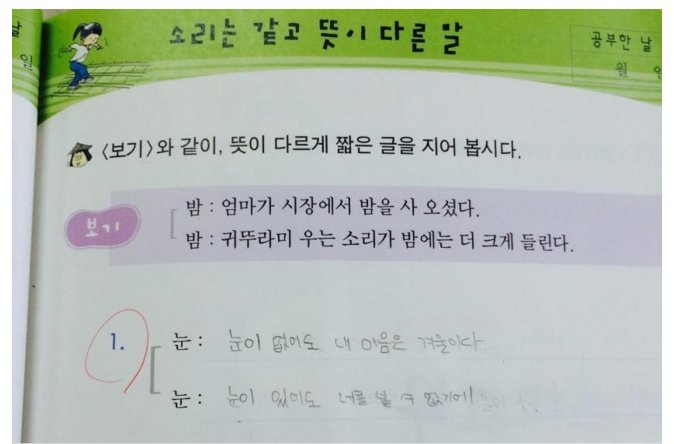 날
일
소리는 같고 뜻이 다른 말
공부한 날
월 일
〈보기〉와 같이, 뜻이 다르게 짧은 글을 지어 봅시다.
보기
밤 : 엄마가 시장에서 밤을 사 오셨다.
밤 : 귀뚜라미 우는 소리가 밤에는 더 크게 들린다.
1.
눈 : 눈이 없어도 내 마음은 겨울이다.
눈 : 눈이 있어도 너를 볼 수 없기에